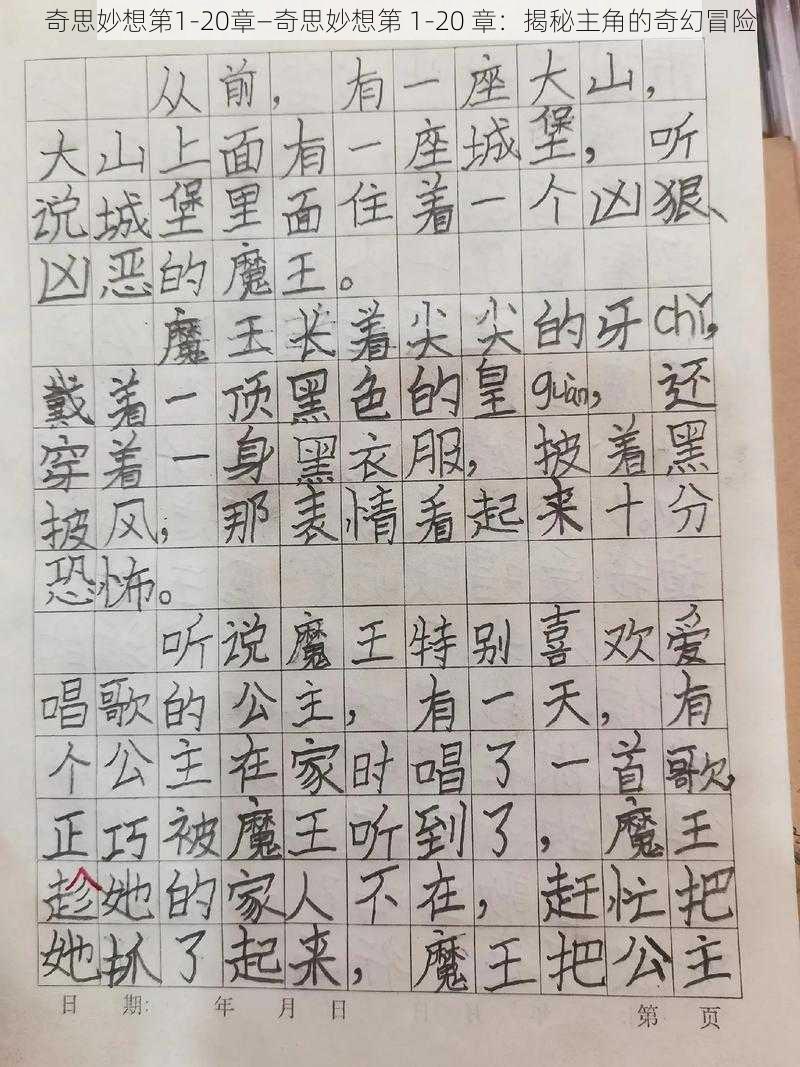 奇思妙想第1-20章—奇思妙想第 1-20 章：揭秘主角的奇幻冒险
从前，有一座大山，
大山上面有一座城堡，听
说城堡里面住着一个凶狠、
凶恶的魔王。
魔王长着尖尖的牙chǐ，
戴着一顶黑色的皇guàn，还
穿着一身黑衣服，披着黑
披风，那表情看起来十分
恐怖。
听说魔王特别喜欢爱
唱歌的公主，有一天，有
个公主在家时唱了一首歌，
正巧被魔王听到了，魔王
趁她的家人不在，赶忙把
她抓了起来，魔王把公主
日 期： 年 月 日 第 页